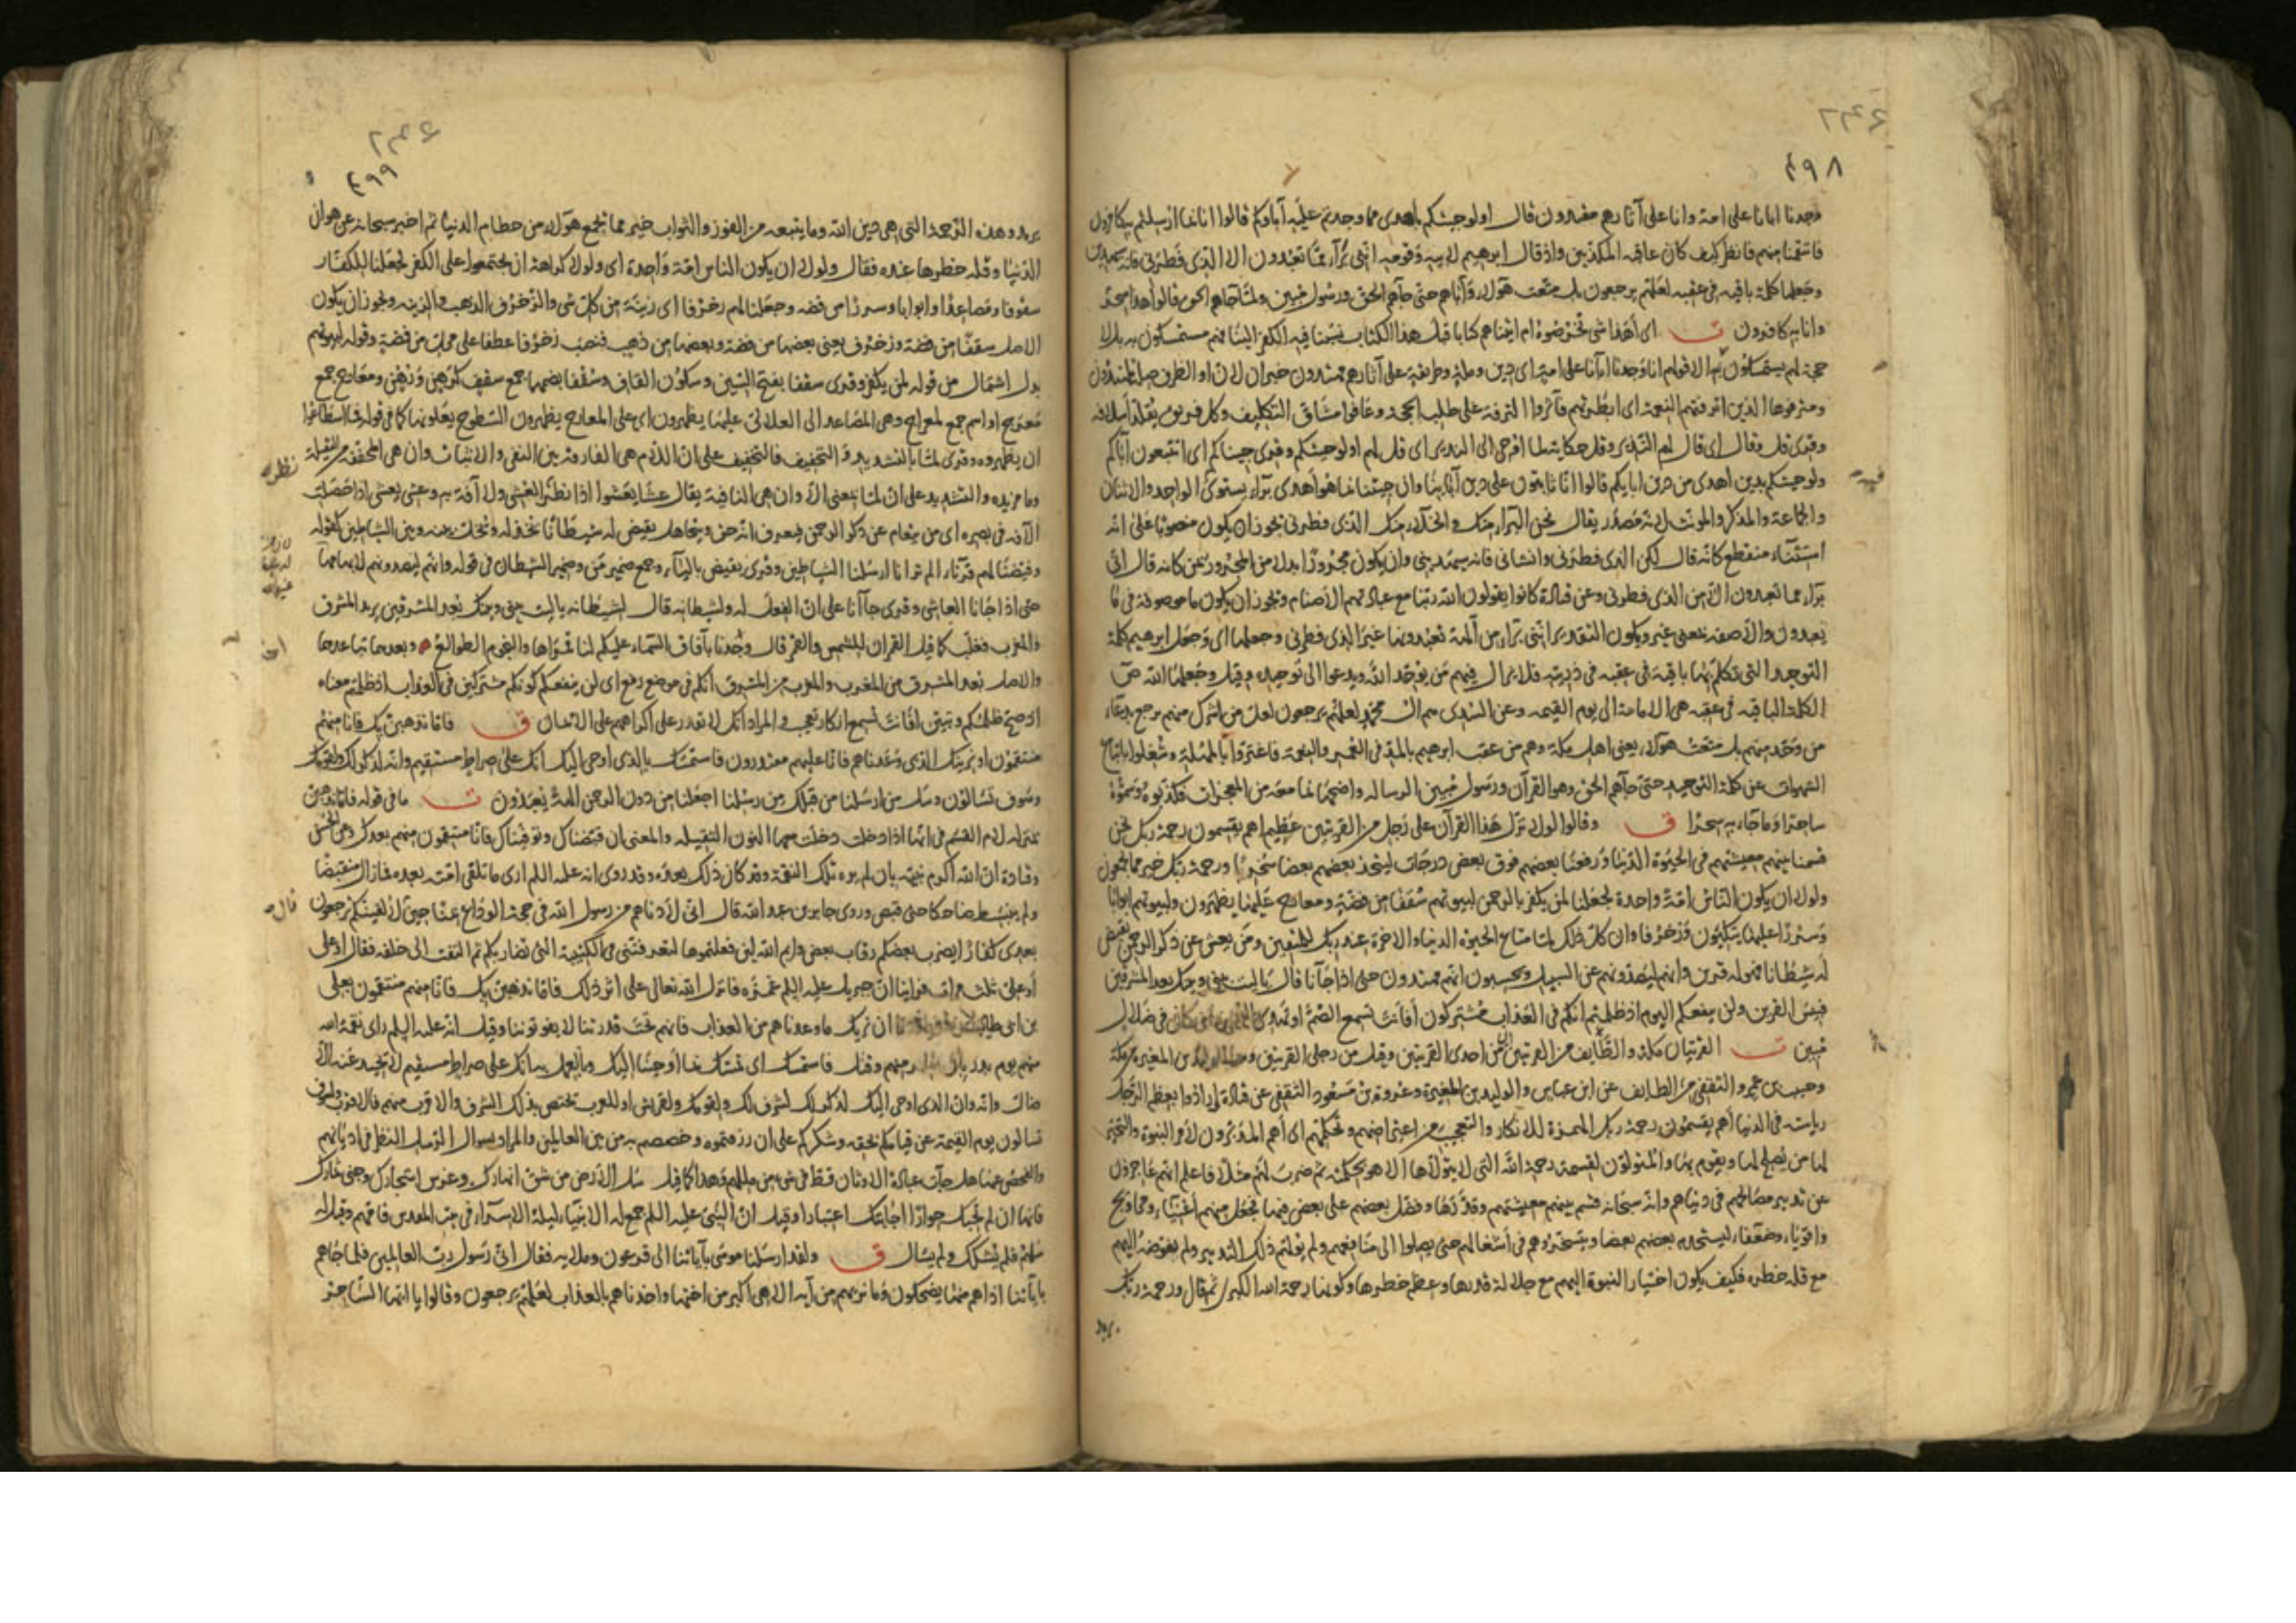 ٤٩٨
وجدنا اباءنا على امة وانا على آثارهم مقتدون قال اولو جئتكم باهدى مما وجدتم عليه آباءكم قالوا انا بما ارسلتم به كافرون
فانتقمنا منهم فانظر كيف كان عاقبة المكذبين واذ قال ابرهيم لابيه وقومه اننى برآء مما تعبدون الا الذى فطرنى فانه سيهدين
وجعلها كلمة باقيه فى عقبه لعلهم يرجعون بل متعت هؤلاء وآباءهم حتى جآءهم الحق ورسول مبين ولما جاءهم الحق قالوا هذا سحر
وانا به كافرون ت اى أهذا شى تخرضوه ام اتيناهم كتابا قبل هذا الكتاب نسبنا فيه الكفر الينا فهم مستمسكون به بل لا
حجة لهم يستمسكون به الا قولهم انا وجدنا اباءنا على امة اى دين وملة وطريقة على آثارهم مهتدون خبران لان او الظرف صلة لمهتدون
ومترفوها الذين اترفتهم النعمة اى ابطرتهم فآثروا الترفة على طلب الحجة وعافوا مشاق التكليف وكل فريق يقلد أسلافه
وقرى قل وقال اى قال لهم النذير وقل حكاية لما اوحى الى النذير اى قل لهم اولو جئتكم وقرى جيناكم اى اتتبعون آباءكم
ولو جئتكم بدين اهدى من دين ابايكم قالوا انا ثابتون على دين آبائنا وان جئتنا بما هو أهدى برآء يستوى الواحد والاثنان
والجماعة والمذكر والمونث لانه مصدر يقال نحن البراء منك والخلاء منك الذى فطرنى يجوز ان يكون منصوبا على انه
استثناء منقطع كانه قال لكن الذى فطرنى وانشانى فانه سيهدينى وان يكون مجرورًا بدلا من المجرور بمن كانه قال انى
برآء مما تعبدون الا من الذى فطرنى وعن قتادة كانوا يقولون الله ربنا مع عبادتهم الأصنام ويجوز ان يكون ما موصوفة فى ما
تعبدون والا صفة بمعنى غير ويكون التقدير اننى برآء من آلهة تعبدونها غير الذى فطرنى وجعلها اى وجعل ابرهيم كلمة
التوحيد التى تكلم بها باقية فى عقبه فى ذريته فلا يزال فيهم من يوحد الله ويدعوا الى توحيده وقيل وجعلها الله ص
الكلمة الباقيه فى عقبه هى الامامة الى يوم القيمه وعن السدى هم ال محمد لعلهم يرجعون لعل من اشرك منهم يرجع بدعاء
من وحد منهم بل متعت هؤلاء يعنى اهل مكة وهم من عقب ابرهيم بالمد فى العمر والنعمة فاغتروا بالمهلة وشغلوا باتباع
الشهوات عن كلمة التوحيد حتى جآءهم الحق وهو القرآن ورسول مبين الرساله واضحها بما معه من المعجزات فكذبوه وسموه
ساحرا وما جاء به سحرا ق وقالوا لولا نزل هذا القرآن على رجل من القريتين عظيم اهم يقسمون رحمة ربك نحن
قسمنا بينهم معيشتهم فى الحيوة الدنيا ورفعنا بعضهم فوق بعض درجات ليتخذ بعضهم بعضا سخريا ورحمة ربك خير مما يجمعون
ولولا ان يكون الناس امة واحدة لجعلنا لمن يكفر بالرحمن لبيوتهم سقفا من فضة ومعارج عليها يظهرون ولبيوتهم ابوابا
وسررًا عليها يتكئون وزخرفا وان كل ذلك لما متاع الحيوة الدنيا والاخرة عند ربك للمتقين ومن يعش عن ذكر الرحمن نقيض
له شيطانا فهو له قرين وانهم ليصدونهم عن السبيل ويحسبون انهم مهتدون حتى اذا جاآنا قال ياليت بينى وبينك بعد المشرقين
فبئس القرين ولن ينفعكم اليوم اذ ظلمتم انكم فى العذاب مشتركون أفانت تسمع الصم او تهدى العمى ومن كان فى ضلال
مبين ت القريتان مكة والطايف من القريتين من احدى القريتين وقيل من رجلى القريتين وهما الوليد بن المغيرة من مكة
وحبيب بن عمرو الثقفى من الطايف عن ابن عباس والوليد بن المغيرة وعروة بن مسعود الثقفى عن قتادة ارادوا بعظم الرجل
رياسته فى الدنيا أهم يقسمون رحمة ربك الهمزة للانكار والتعجيب من اعتراضهم وتحكمهم اى أهم المدبرون لأمر النبوة والتخير
لها من يصلح لها ويقوم بها والمتولون لقسمة رحمة الله التى لا يتولاها الا هو بحكمته ثم ضرب لهم مثلا فاعلم انهم عاجزون
عن تدبير مصالحهم فى دنياهم وانه سبحانه قسم بينهم معيشتهم وقدرها وفضل بعضهم على بعض فيها فجعل منهم أغنياء ومحاويج
واقوياء وضعفاء ليستخدم بعضهم بعضا ويتسخروهم فى أشغالهم حتى يصلوا الى منافعهم ولم يولهم ذلك التدبير ولم يفوضه اليهم
مع قلة خطره فكيف يكون اختيار النبوة اليهم مع جلالة قدرها وعظم خطرها وكونها رحمة الله الكبرى ثم قال ورحمة ربك
يريد
٤٩٩
يريد وهذه الرحمة التى هى دين الله وما يتبعه من الفوز والثواب خير مما يجمع هؤلاء من حطام الدنيا ثم اخبر سبحانه عن هوان
الدنيا وقلة خطرها عنده فقال ولولا ان يكون الناس امة واحدة اى ولولا كراهة ان يجتمعوا على الكفر لجعلنا للكفار
سقوفا ومصاعد وابوابا وسررا من فضه وجعلنا لهم زخرفا اى زينة من كل شى والزخرف الذهب والزينه ويجوز ان يكون
الاصل سقفا من فضة وزخرف يعنى بعضها من فضة وبعضها من ذهب فنصب زخرفا عطفا على محل من فضة وقوله لبيوتهم
بدل اشتمال من قوله لمن يكفر وقرى سقفا بفتح السين وسكون القاف وسقفا بضمها جمع سقف كرهن ورهن ومعارج جمع
معرج او اسم جمع لمعراج وهى المصاعد الى العلالى عليها يظهرون اى على المعارج يظهرون السطوح يعلونها كما فى قوله فما اسطاعوا
ان يظهروه وقرى لما بالتشديد والتخفيف فالتخفيف على ان اللام هى الفارقة بين النفى والاثبات وان هى المخففة من الثقيلة
وما مزيده والتشديد على ان لما بمعنى الا وان هى النافية يقال عشا يعشوا اذا نظر نظر العشى ولا آفة به وعشى يعشى اذا حصلت
الآفة فى بصره اى من يتعام عن ذكر الرحمن فيعرف انه حق ويتجاهل نقيض له شيطانا نخذله ونخل بينه وبين الشياطين كقوله
وقيضنا لهم قرناء الم تر انا ارسلنا الشياطين وقرى يقيض باليآء وجمع ضمير من وضمير الشيطان فى قوله وانهم ليصدونهم لابهامهما
حتى اذا جانا العاشى وقرى جاآنا على ان الفعل له ولشيطانه قال لشيطانه ياليت بينى وبينك بعد المشرقين يريد المشرق
والمغرب فغلب كما قيل القمران للشمس والقمر قال وخذنا بآفاق السماء عليكم لنا قمراها والنجوم الطوالع وبعدهما تباعدهما
والاصل بعد المشرق من المغرب والمغرب من المشرق انكم فى موضع رفع اى لن ينفعكم كونكم مشتركين فى العذاب اذ ظلمتم معناه
اذ صح ظلمكم وتبين افانت تسمع انكار تعجب والمراد انك لا تقدر على اكراههم على الايمان ق فاما نذهبن بك فانا منهم
منتقمون او نرينك الذى وعدناهم فانا عليهم مقتدرون فاستمسك بالذى اوحى اليك انك على صراط مستقيم وانه لذكر لك ولقومك
وسوف تسالون وسل من ارسلنا من قبلك من رسلنا اجعلنا من دون الرحمن الهة يعبدون ت ما فى قوله فاما نذهبن
بمنزلة لام القسم فى انها اذا دخلت دخلت معها النون الثقيله والمعنى ان قبضناك وتوفيناك فانا منتقمون منهم بعدك وعن الحسن
وقتادة ان الله اكرم نبيه بان لم يره تلك النقمة وقد كان ذلك بعده وقد روى انه عليه السلم ارى ما تلقى امته بعده فما زال منقبضا
ولم ينبسط ضاحكا حتى قبض وروى جابر بن عبد الله قال انى لأدناهم من رسول الله فى حجة الوداع بمنا حين لا الفينكم ترجعون
بعدى كفارًا يضرب بعضكم رقاب بعض وايم الله لئن فعلتموها لتعرفننى فى الكتيبة التى تضاربكم ثم التفت الى خلفه فقال او على
أو على ثلث مرات فراينا ان جبريل عليه السلم غمزه فانزل الله تعالى على اثر ذلك فاما نذهبن بك فانا منهم منتقمون بعلى
بن ابى طالب ان نريك ما وعدناهم من العذاب فانهم تحت قدرتنا لا يفوتوننا وقيل انه عليه السلم راى نقمة الله
منهم يوم بدر منهم وقيل فاستمسك اى تمسك بما اوحينا اليك وبالعمل به انك على صراط مستقيم لا يحيد عنه الا
ضال وانه وان الذى اوحى اليك لذكر لك لشرف لك ولقومك ولقريش او للعرب تختص بذلك الشرف والاقرب منهم فالاقرب وسوف
تسالون يوم القيمة عن قيامكم بحقه وشكركم على ان رزقتموه وخصصتم به من بين العالمين والمراد بسوال الرسل النظر فى اديانهم
والفحص عنها هل جآت عبادة الاوثان قط فى شى من مللهم وهذا كما قيل سل الأرض من شق انهارك وغرس اشجارك وجنى ثمارك
فانها ان لم تجبك حوارًا اجابتك اعتبارا وقيل ان النبى عليه السلم جمع له الانبياء ليلة الاسراء فى بيت المقدس فامهم وقيل له
سلهم فلم يشكك ولم يسال ق ولقد ارسلنا موسى بآياتنا الى فرعون وملايه فقال انى رسول رب العالمين فلما جاءهم
بآياتنا اذا هم منها يضحكون وما نريهم من آية الا هى اكبر من اختها واخذناهم بالعذاب لعلهم يرجعون وقالوا يا ايها الساحر